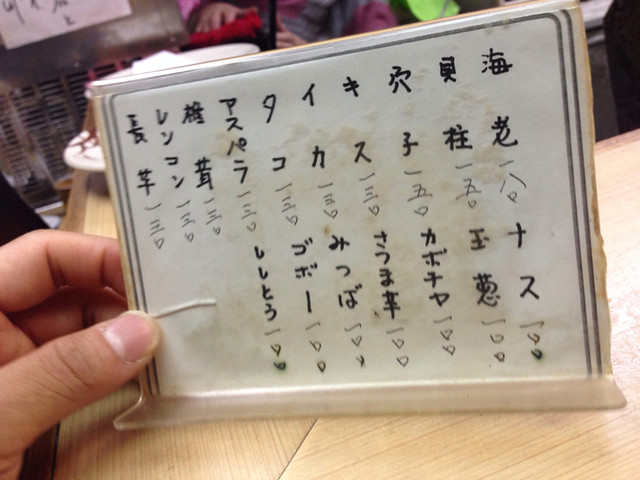 海老 一八〇
貝柱 一五〇
穴子 一五〇
キス 一三〇
イカ 一三〇
タコ 一三〇
アスパラ 一三〇
椎茸 一三〇
レンコン 一三〇
長芋 一三〇
ナス 一〇〇
玉葱 一〇〇
カボチャ 一〇〇
さつま芋 一〇〇
みつば 一〇〇
ゴボー 一〇〇
ししとう 一〇〇